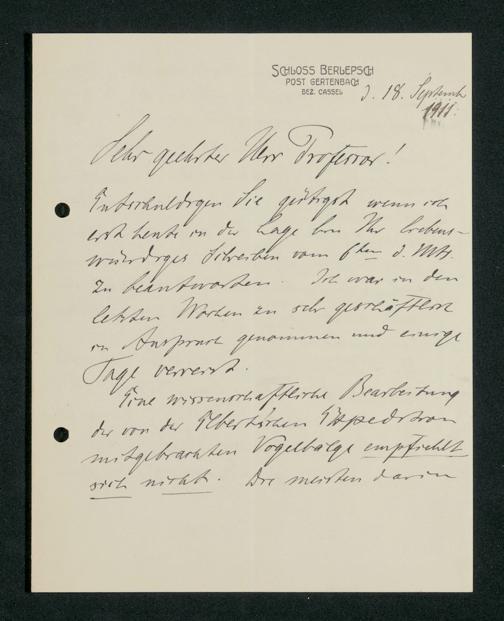 SCHLOSS BERLEPSCH
POST GERTENBACH
BEZ. CASSEL
d. 18. September
1911.
Sehr geehrter Herr Professor!
Entschuldigen Sie gütigst wenn ich
erst heute in der Lage bin Ihr liebens-
würdiges Schreiben vom 6ten d. Mts.
zu beantworten. Ich war in den
letzten Wochen zu sehr geschäftlich
in Anspruch genommen und einige
Tage verreist.
Eine wissenschaftliche Bearbeitung
der von der Elbertschen Expedition
mitgebrachten Vogelbälge empfiehlt
sich nicht. Die meisten darin